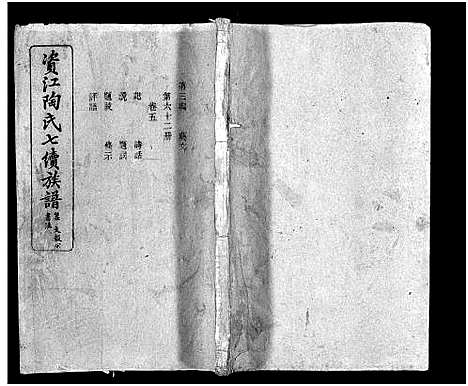 資江陶氏七續族譜
第六十二册
卷五
記 詩話
説 題詞
題跋
評語